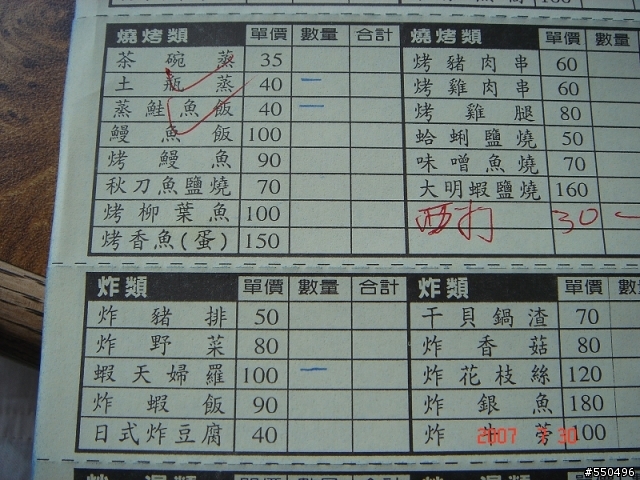 燒烤類 單價 數量 合計
茶碗蒸 35
土瓶蒸 40 一
蒸鮭魚飯 40 一
鰻魚飯 100
烤鰻魚 90
秋刀魚鹽燒 70
烤柳葉魚 100
烤香魚(蛋) 150
燒烤類 單價 數量
烤豬肉串 60
烤雞肉串 60
烤雞腿 80
蛤蜊鹽燒 50
味噌魚燒 70
大明蝦鹽燒 160
西打 30 一
炸類 單價 數量 合計
炸豬排 50
炸野菜 80
蝦天婦羅 100 一
炸蝦飯 90
日式炸豆腐 40
炸類 單價 數量
干貝鍋渣 70
炸香菇 80
炸花枝絲 120
炸銀魚 180
炸牛蒡 100
2007 7 30
#550496